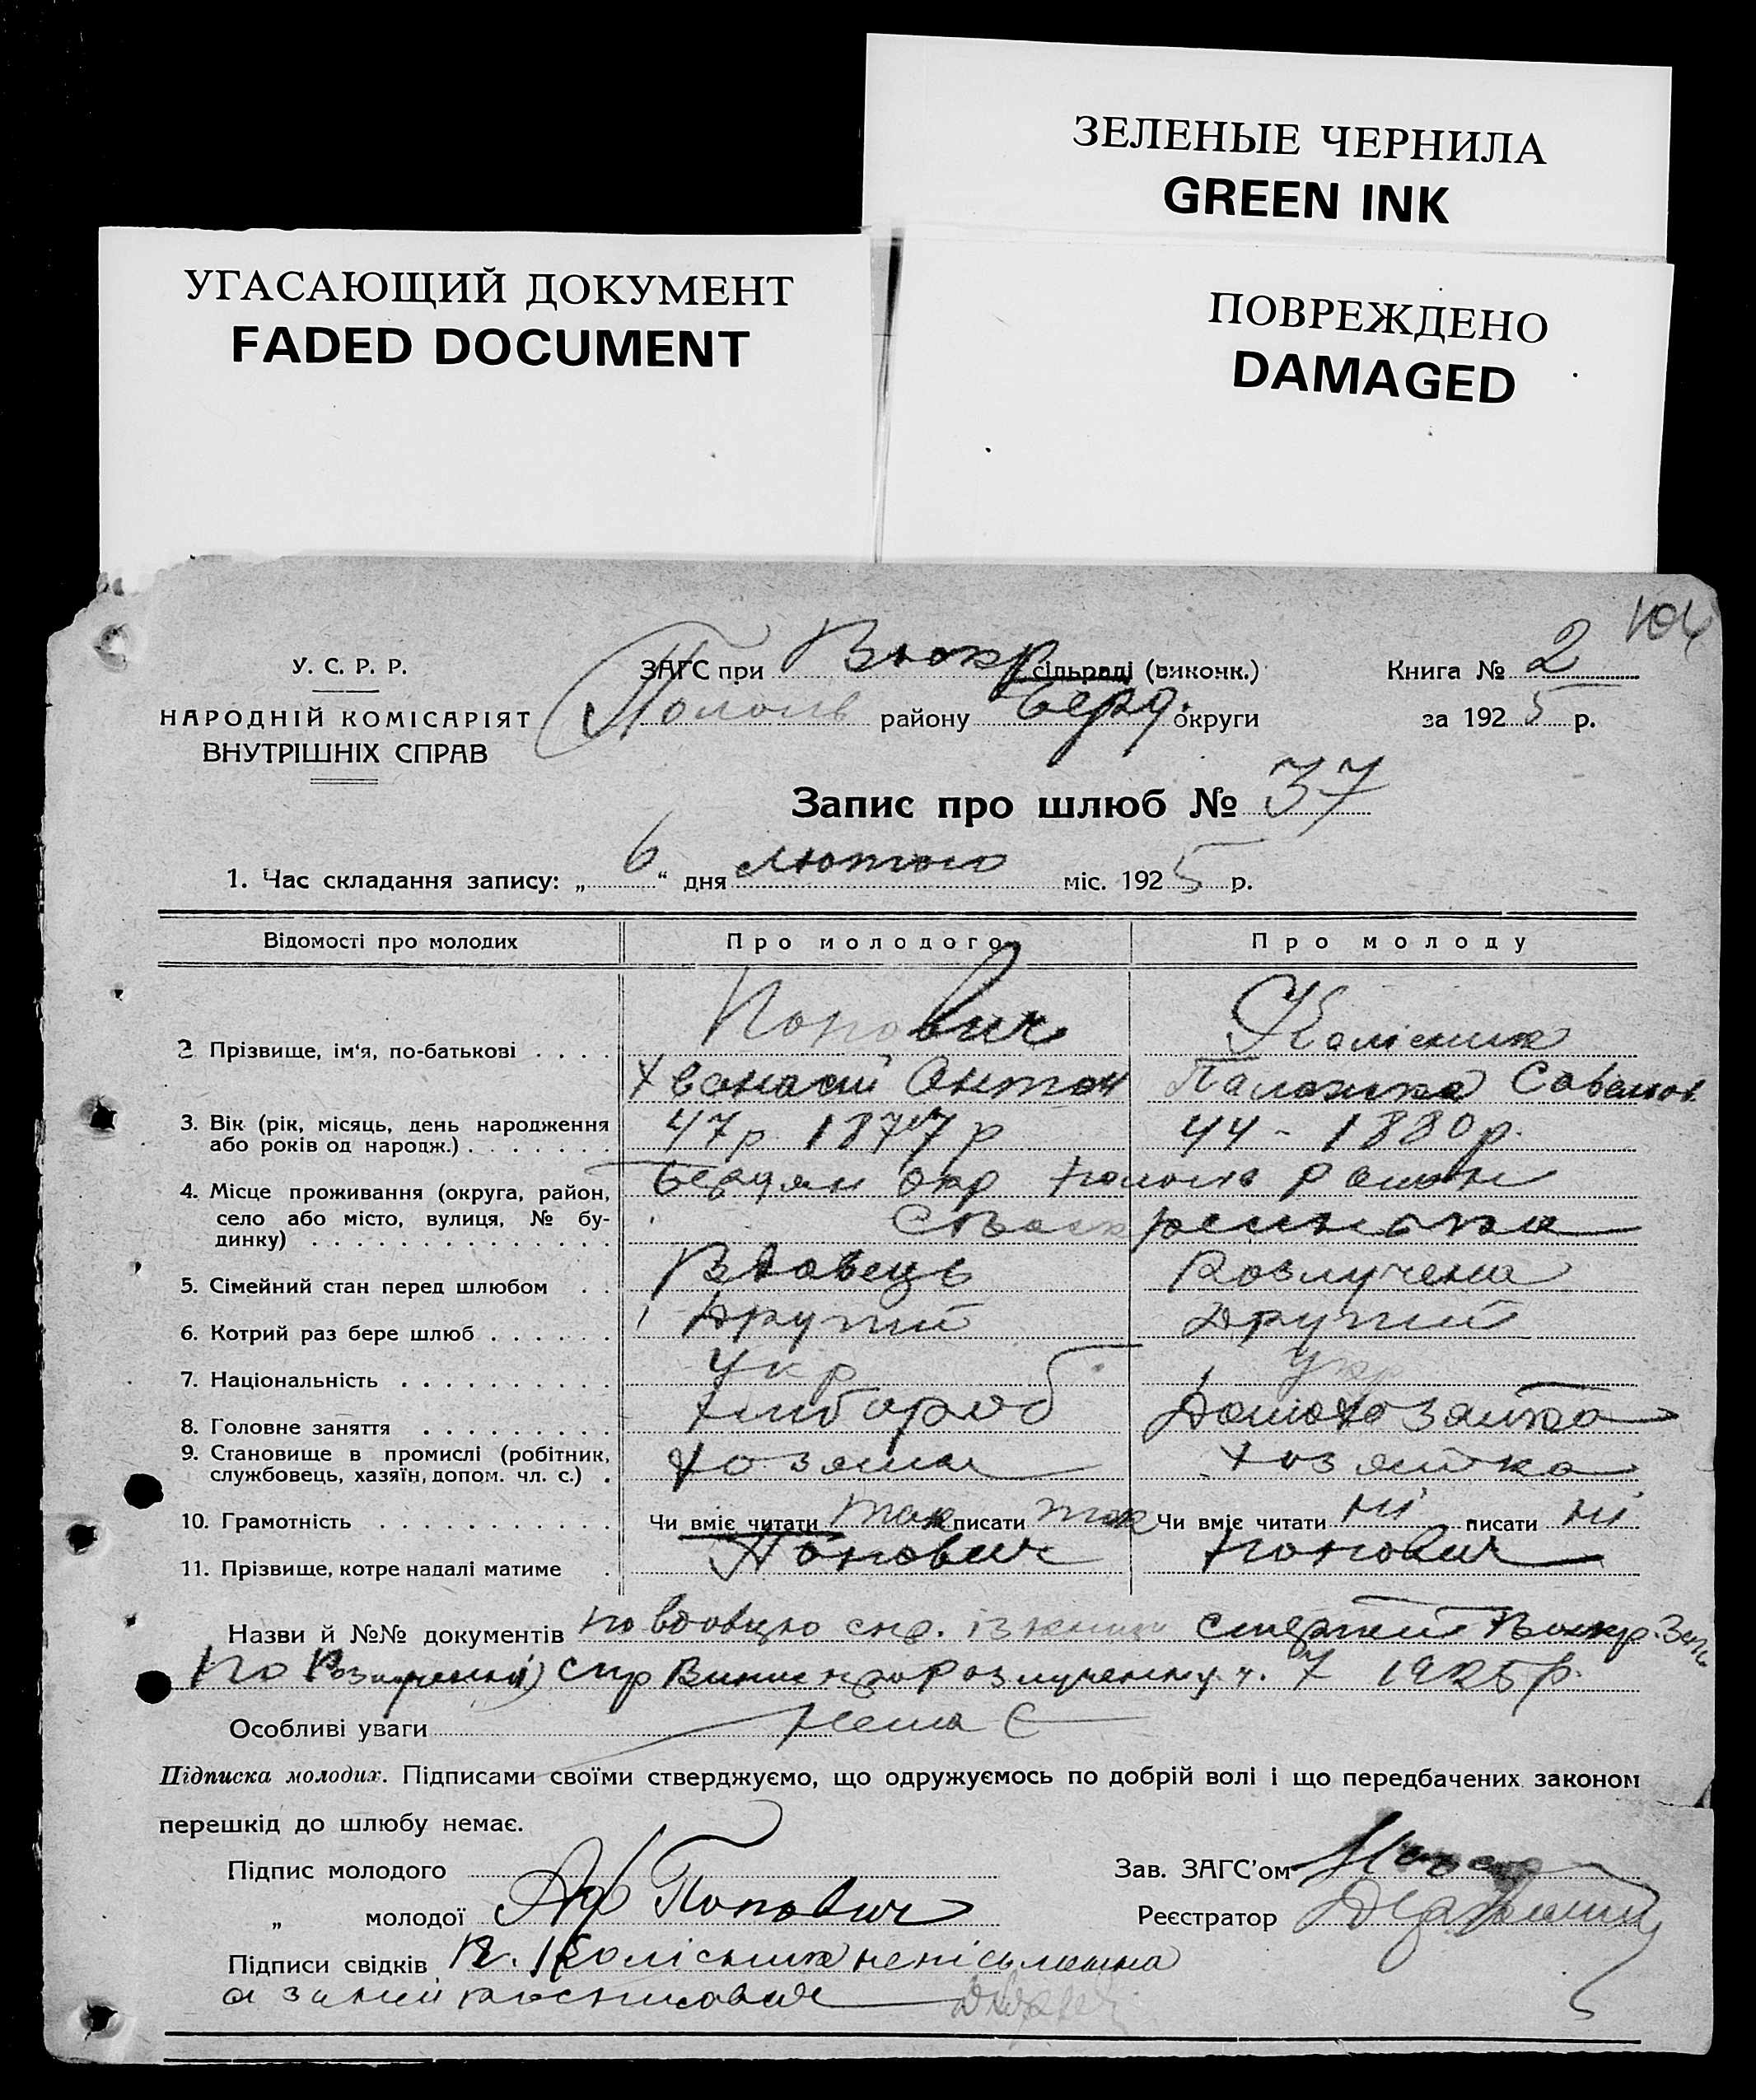 ЗЕЛЕНЫЕ ЧЕРНИЛА
GREEN INK
УГАСАЮЩИЙ ДОКУМЕНТ
FADED DOCUMENT
ПОВРЕЖДЕНО
DAMAGED
У. С. Р. Р.
НАРОДНІЙ КОМІСАРІЯТ
ВНУТРІШНІХ СПРАВ
ЗАГС при Воскр сільраді (виконк.)
району Берд. округи
Книга № 2
за 1925 р.
Запис про шлюб № 37
1. Час складання запису: „ 6 “ дня лютого міс. 1925 р.
Відомості про молодих Про молодого Про молоду
2 Прізвище, ім'я, по-батькові . . . . Попович Колісник
Хванасій Антон Палажка Савелов
3. Вік (рік, місяць, день народження 47 р 1877 р 44 - 1880 р.
або років од нарoдж.) . . . . . . .
4. Місце проживання (округа, район, Бердян окр район
село або місто, вулиця, № бу-
динку) . . . . . . . . . . . . . .
5. Сімейний стан перед шлюбом . . Вдовець Розлучена
6. Котрий раз бере шлюб . . . . . . Другий Другий
7. Національність . . . . . . . . . . Укр Укр
8. Головне заняття . . . . . . . . . хлібороб Домохозяйка
9. Становище в промислі (робітник, хозяин хозяйка
службовець, хазяїн, допом. чл. с.) .
10. Грамотність . . . . . . . . . . . Чи вміє читати так писати так Чи вміє читати ні писати ні
11. Прізвище, котре надалі матиме . Попович Попович
Назви й №№ документів по вдовцю спр. із книги смертей Воскр.
По розлученій спр 7 1925 р.
Особливі уваги Нема є
Підписка молодих. Підписами своїми стверджуємо, що одружуємось по добрій волі і що передбачених законом
перешкід до шлюбу немає.
Підпис молодого
Зав. ЗАГС'ом
„ молодої Аф Попович
Реєстратор
Підписи свідків П. Колісник непісьменна
а за неї росписався